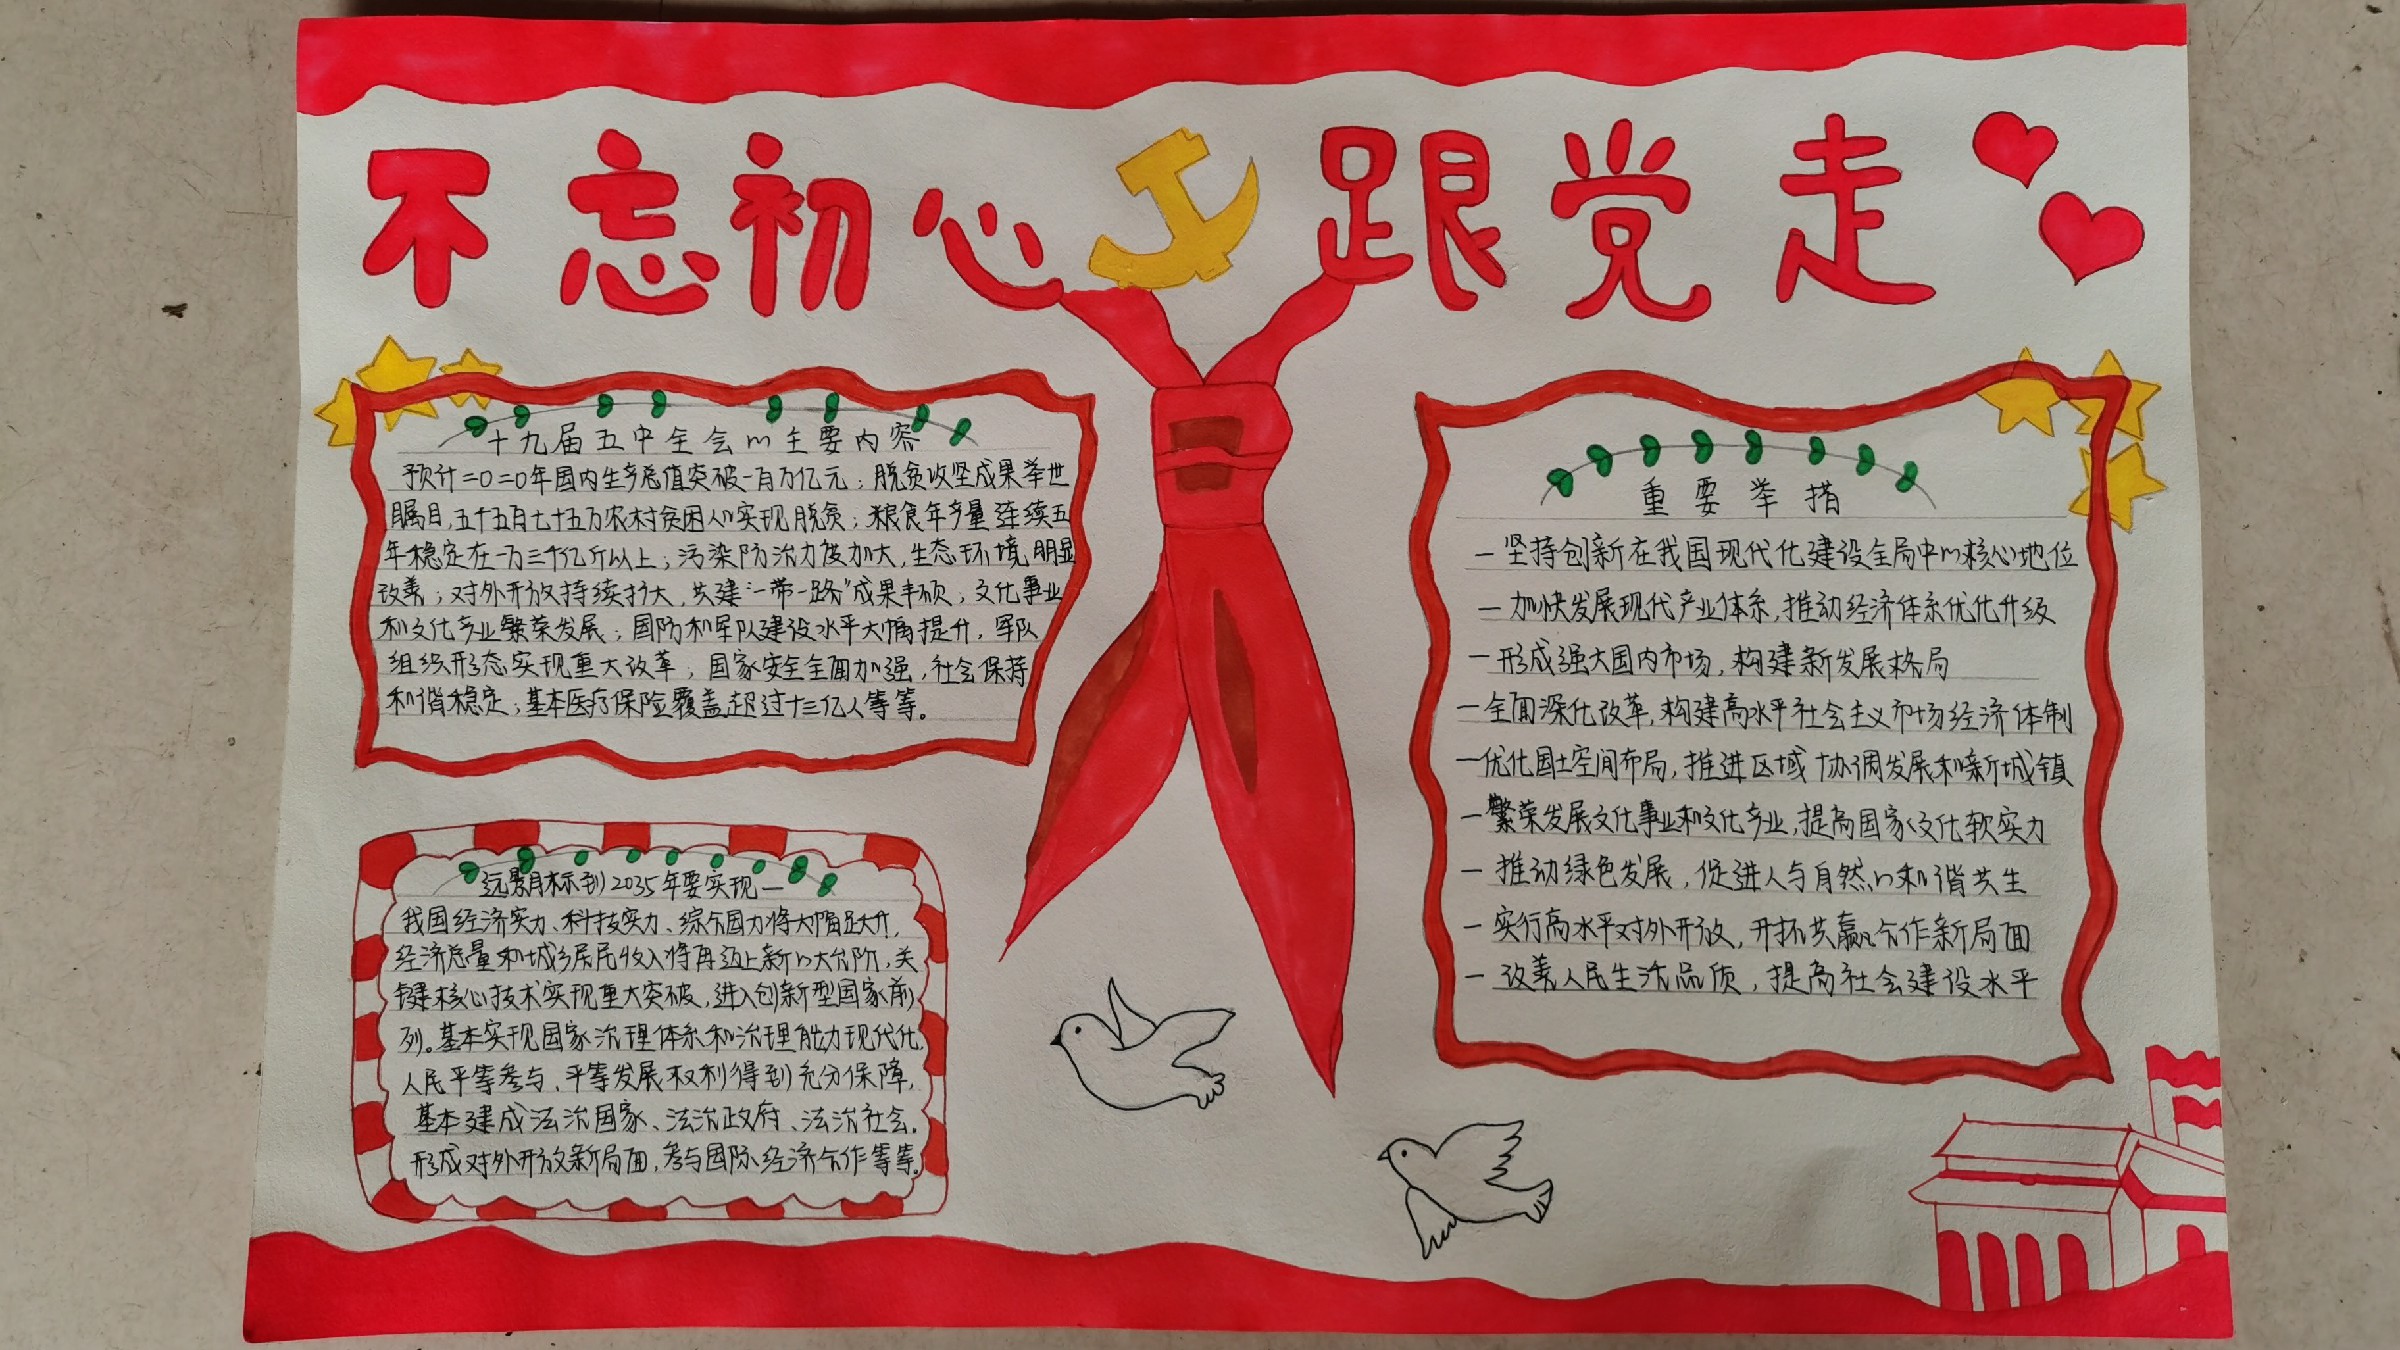 不忘初心 跟党走
十九届五中全会的主要内容
预计二0二0年国内生产总值突破一百万亿元；脱贫攻坚成果举世
瞩目，五千五百七十五万农村贫困人口实现脱贫；粮食年产量连续五
年稳定在一万三千亿斤以上；污染防治力度加大，生态环境明显
改善；对外开放持续扩大，共建“一带一路”成果丰硕，文化事业
和文化产业繁荣发展；国防和军队建设水平大幅提升，军队
组织形态实现重大改革；国家安全全面加强，社会保持
和谐稳定；基本医疗保险覆盖超过十三亿人等等。
远景目标到2035年要实现一
我国经济实力、科技实力、综合国力将大幅跃升，
经济总量和城乡居民收入将再迈上新的大台阶，关
键核心技术实现重大突破，进入创新型国家前
列。基本实现国家治理体系和治理能力现代化，
人民平等参与、平等发展权利得到充分保障，
基本建成法治国家、法治政府、法治社会。
形成对外开放新局面，参与国际经济合作等等。
重要举措
一坚持创新在我国现代化建设全局中的核心地位
一加快发展现代产业体系，推动经济体系优化升级
一形成强大国内市场，构建新发展格局
一全面深化改革，构建高水平社会主义市场经济体制
一优化国土空间布局，推进区域协调发展和新城镇
一繁荣发展文化事业和文化产业，提高国家文化软实力
一推动绿色发展，促进人与自然的和谐共生
一实行高水平对外开放，开拓共赢合作新局面
一改善人民生活品质，提高社会建设水平